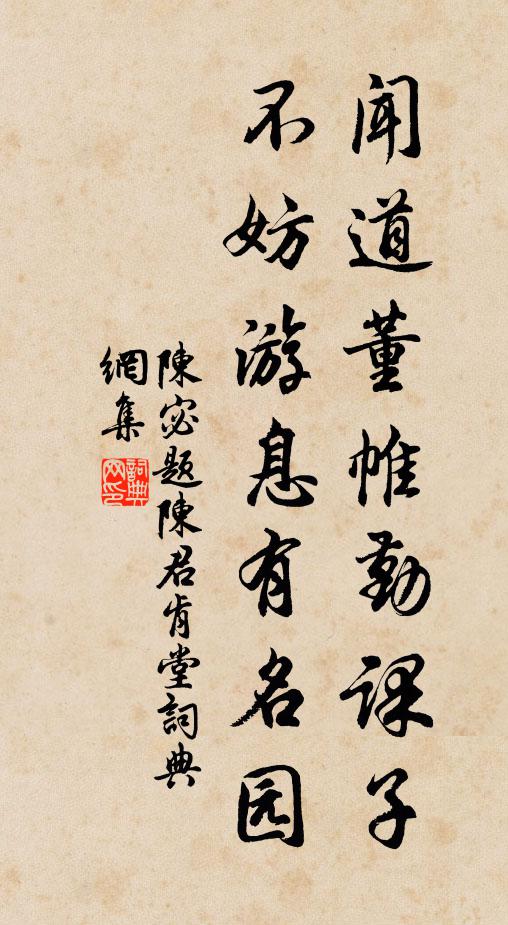 闻道董帷勤课子
不妨游息有名园
陳宓题陳君肯堂詞典
網集
詞典网印